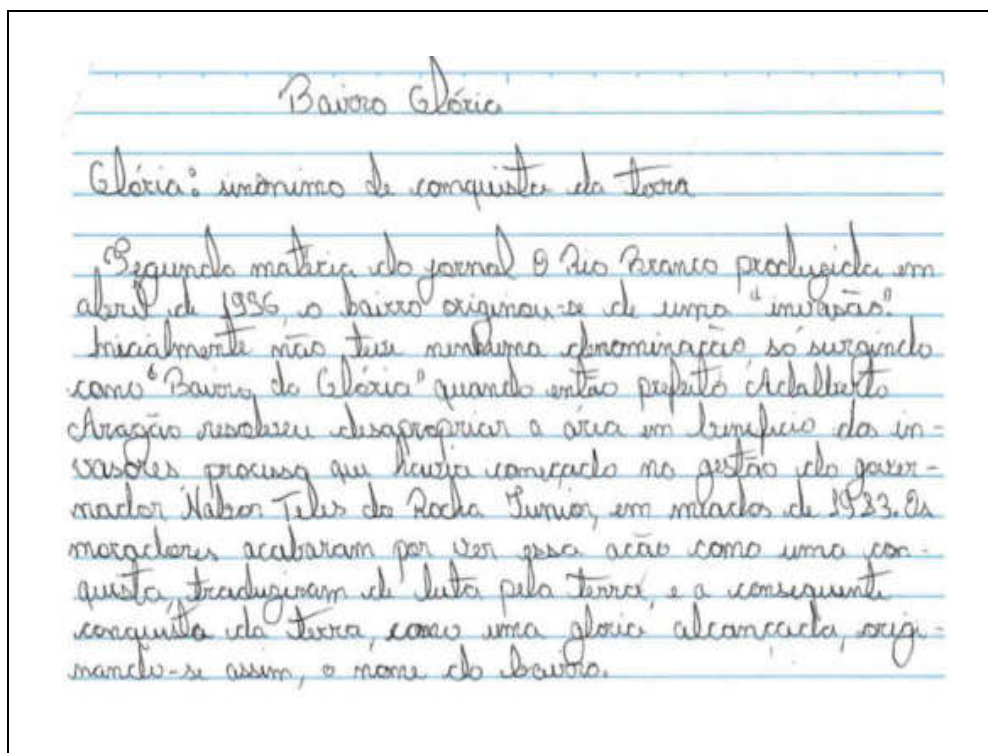 Bairro Glória
Glória: sinônimo de conquista da terra
Segundo matéria do jornal O Rio Branco produzida em
abril de 1996, o bairro originou-se de uma "invasão".
Inicialmente não teve nenhuma denominação só surgindo
como "Bairro da Glória" quando então prefeito Adalberto
Aragão resolveu desapropriar a área em beneficio dos in-
vasores processo que havia começado na gestão do gover-
nador Nabor Teles da Rocha Junior, em meados de 1983. Os
moradores acabaram por ver essa acão como uma con-
quista, traduziram de luta pela terra, e a consequente
conquista da terra, como uma glória alcançada, origi-
nando-se assim, o nome do bairro.